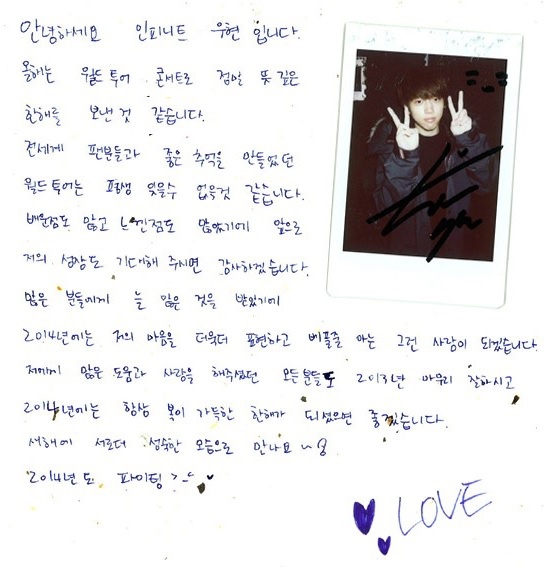 안녕하세요 인피니트 우현 입니다.
올해는 월드투어 콘서트로 정말 뜻 깊은
한해를 보낸것 같습니다.
전세계 팬분들과 좋은 추억을 만들었던
월드투어는 평생 잊을수 없을것 같습니다.
배운점도 많고 느낀점도 많았기에 앞으로
저의 성장도 기대해 주시면 감사하겠습니다.
많은 분들에게 늘 많은 것을 받았기에
2014년에는 저의 마음을 더욱더 표현하고 베풀줄 아는 그런 사람이 되겠습니다.
저에게 많은 도움과 사랑을 해주셨던 모든분들도 2013년 마무리 잘하시고
2014년에는 항상 복이 가득한 한해가 되셨으면 좋겠습니다.
새해에 서로더 성숙한 모습으로 만나요~
2014년도 파이팅 >_<
LOVE